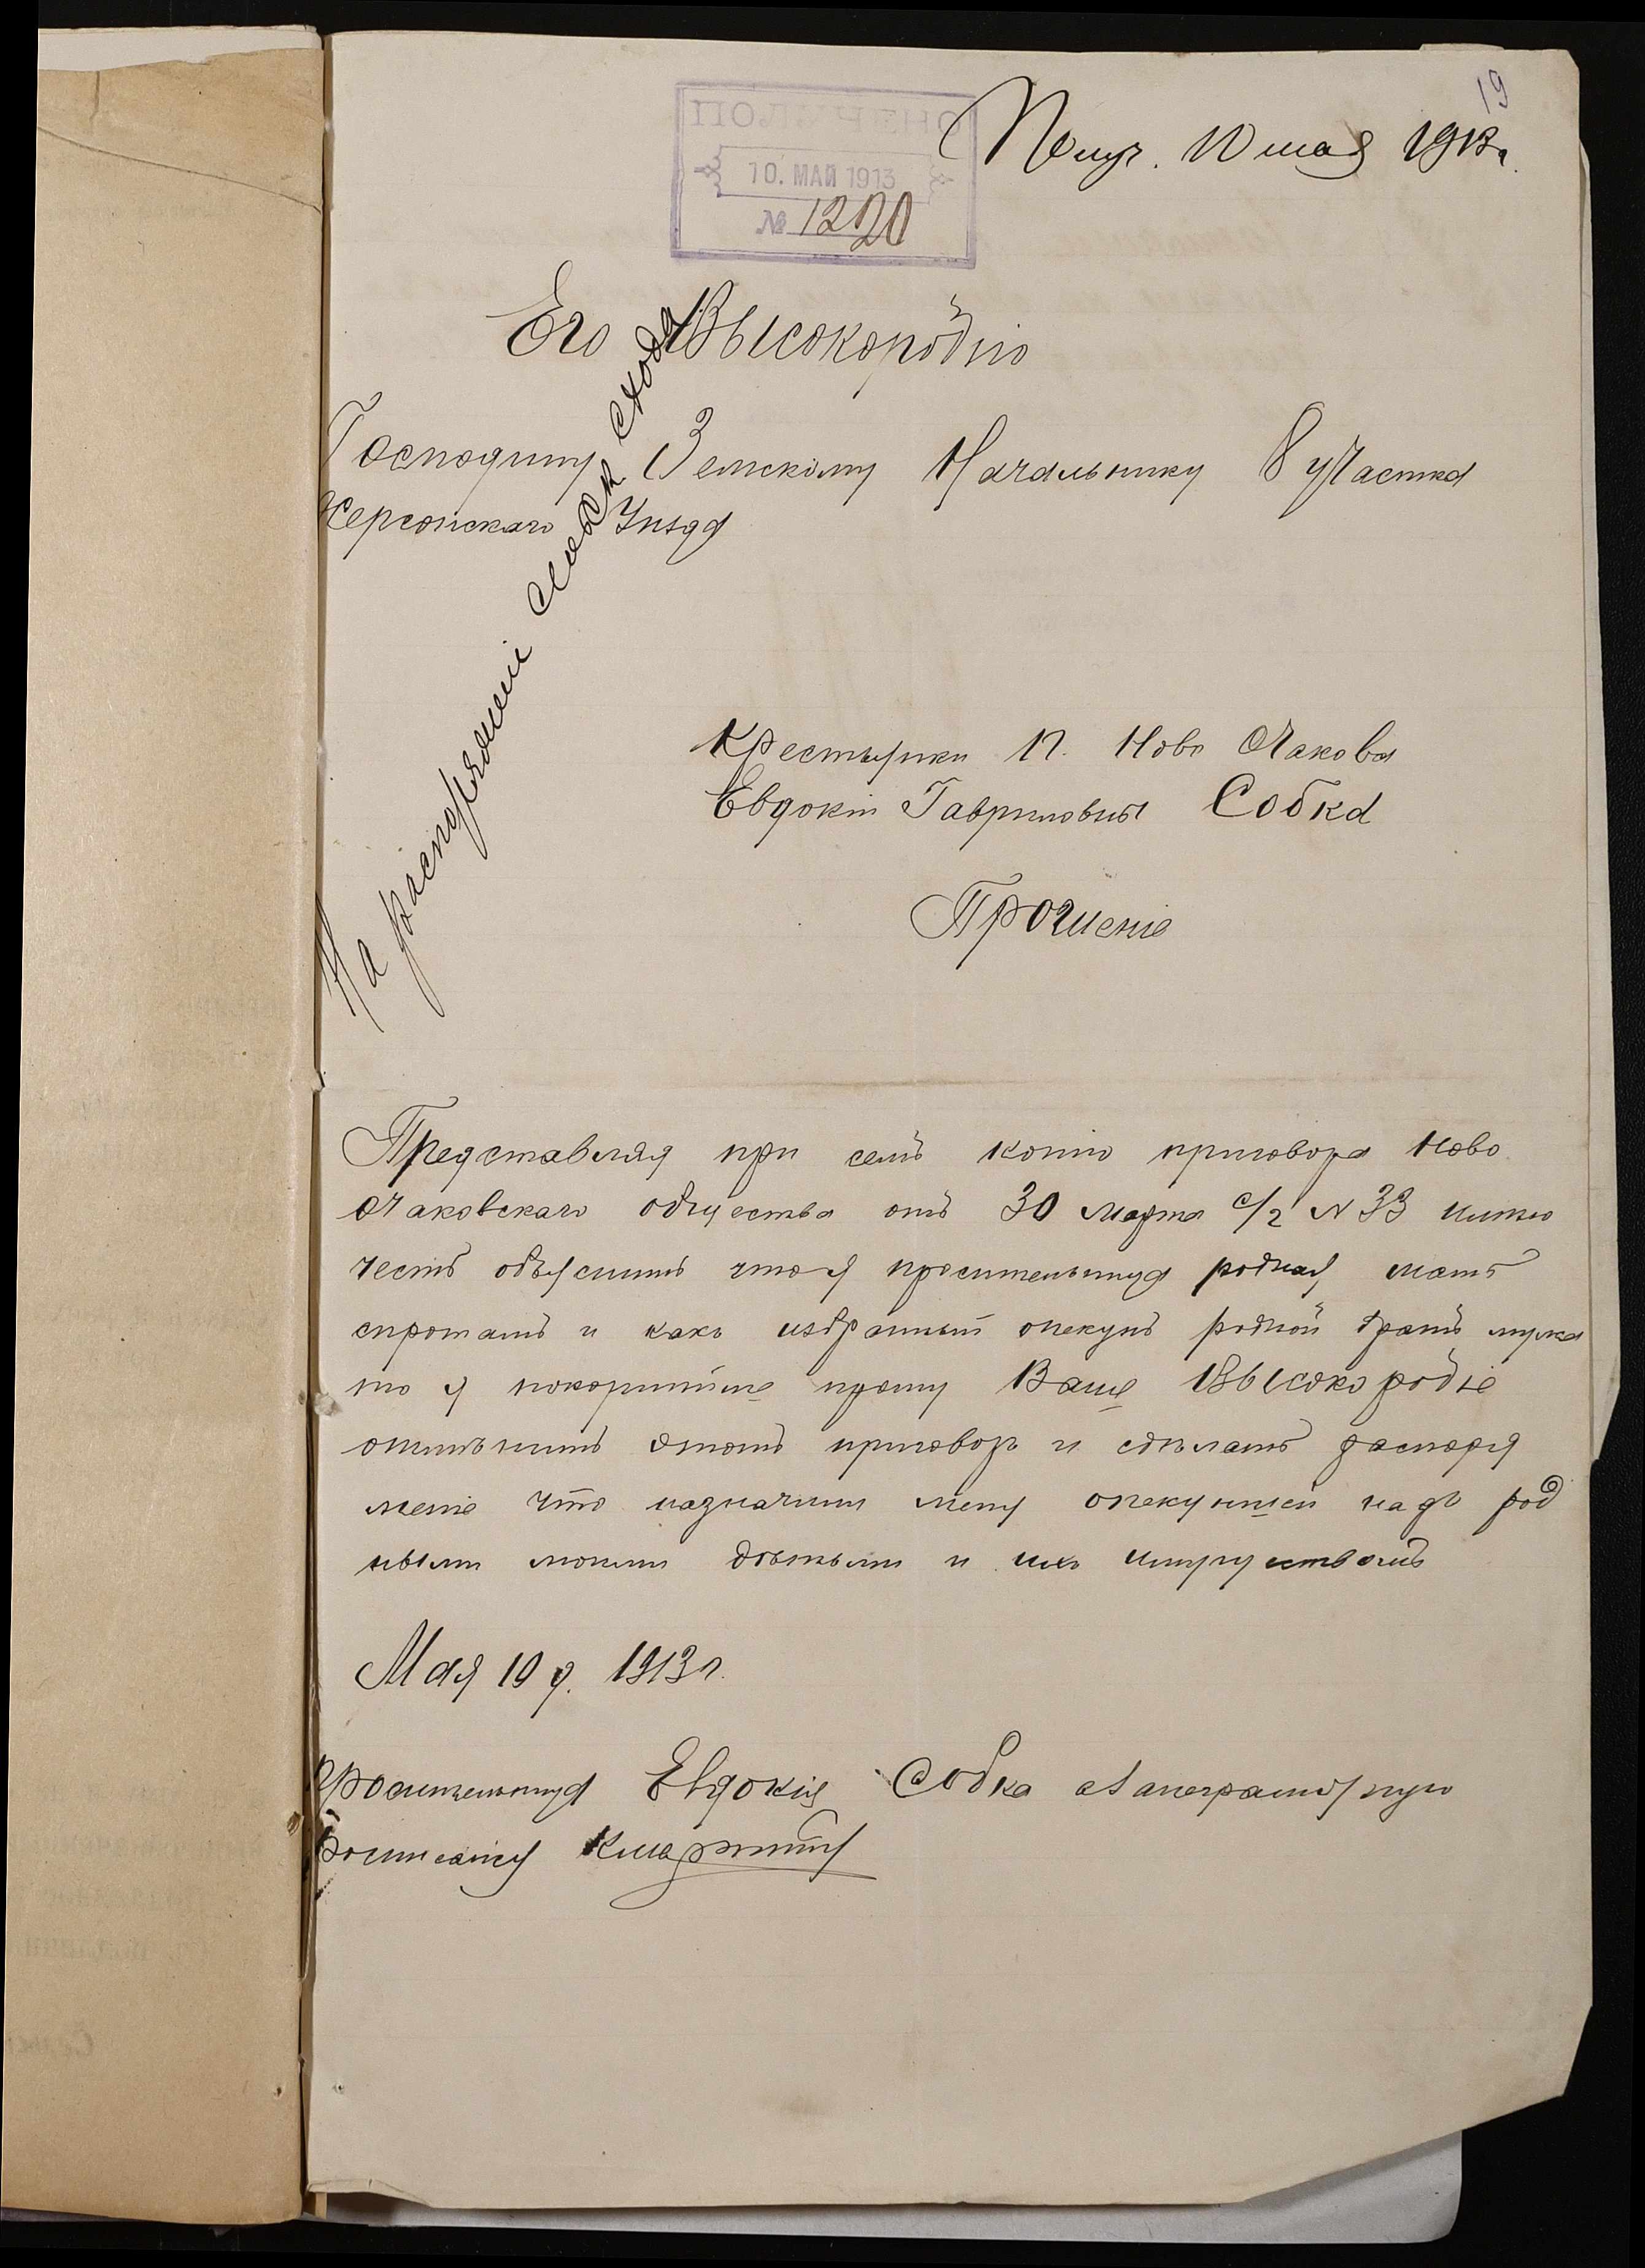 19
Получ. 10 мая 1913 г.
ПОЛУЧЕНО
10. МАЙ 1913
№ 1220
Его Высокородію
Господину Земскому Начальнику 8 участка
Херсонскаго Уѣзда
На распоряженіе сельск схода
Крестьянки п. Ново Очакова
Евдокіи Гавриловны Собка
Прошеніе
Представляя при семъ копію приговора Ново
Очаковскаго общества отъ 30 Марта с/г N 33 имѣю
честь объяснить что я просительница родная мать
сиротамъ и какъ избранный опекунъ родной братъ мужа
то я покорнѣйше прошу Ваше Высокородіе
отмѣнить этотъ приговоръ и сдѣлать распоря
женіе что назначили меня опекуншей надъ род
ными моими дѣтьми и ихъ имуществомъ
Мая 10 д. 1913 г.
Просительница Евдокія Собка а за неграмотную
росписался